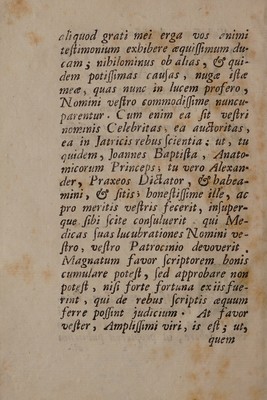 aliquod grati mei erga vos animi
testimonium exhibere æquissimum du-
cam; nihilominus ob alias, & qui-
dem potissimas causas, nugæ istæ
meæ, quas nunc in lucem profero,
Nomini vestro commodissime nuncu-
parentur. Cum enim ea sit vestri
nominis Celebritas, ea auctoritas,
ea in Jatricis rebus scientia; ut, tu
quidem, Joannes Baptista, Anato-
micorum Princeps, tu vero Alexan-
der, Praxeos Dictator, & habea-
mini, & sitis; honestissime ille, ac
pro meritis vestris fecerit, insuper-
que sibi scite consuluerit, qui Me-
dicas suas lucubrationes Nomini ve-
stro, vestro Patrocinio devoverit.
Magnatum favor scriptorem bonis
cumulare potest, sed approbare non
potest, nisi forte fortuna ex iis fue-
rint, qui de rebus scriptis æquum
ferre possint judicium. At favor
vester, Amplissimi viri, is est; ut,
quem